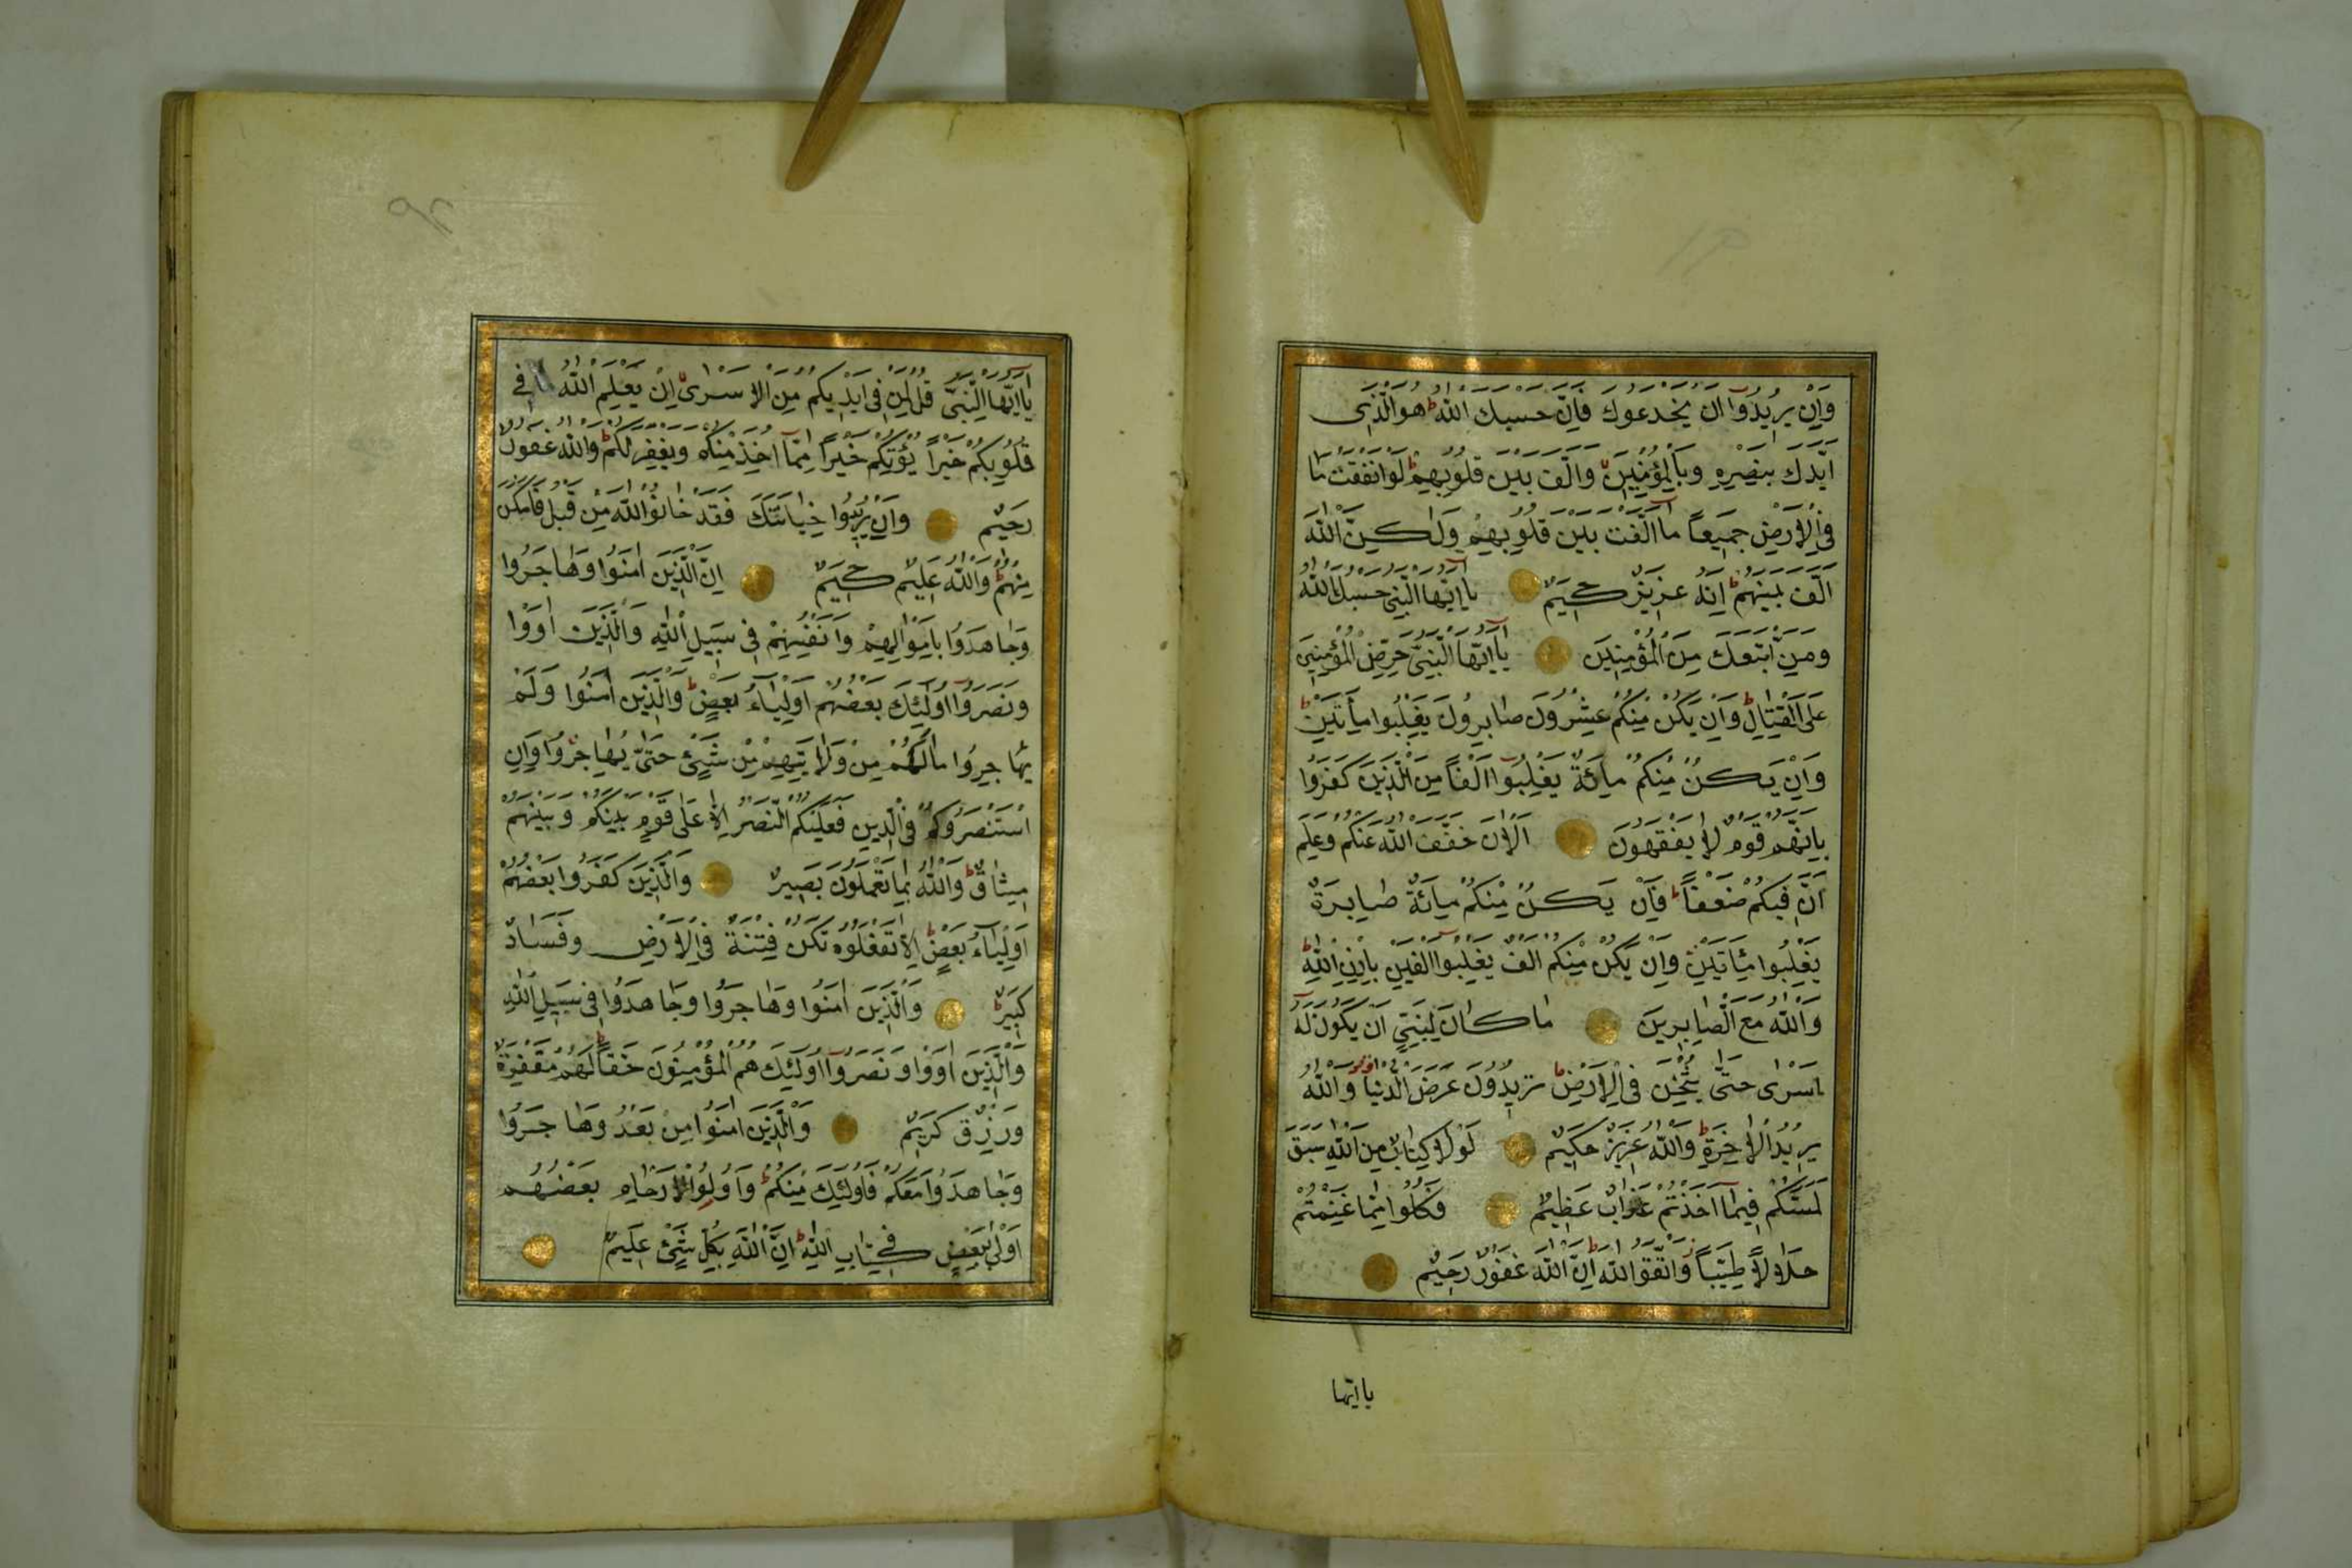 وَاِنْ يُرِيدُوا اَنْ يَخْدَعُوكَ فَاِنَّ حَسْبَكَ اللّٰهُ هُوَ الَّذِى
اَيَّدَكَ بِنَصْرِهِ وَبِالْمُؤْمِنِينَ وَاَلَّفَ بَيْنَ قُلُوبِهِمْ لَوْ اَنْفَقْتَ مَا
فِى الْاَرْضِ جَمِيعاً مَا اَلَّفْتَ بَيْنَ قُلُوبِهِمْ وَلٰكِنَّ اللّٰهَ
اَلَّفَ بَيْنَهُمْ اِنَّهُ عَزِيزٌ حَكِيمٌ يَا اَيُّهَا النَّبِىُّ حَسْبُكَ اللّٰهُ
وَمَنِ اتَّبَعَكَ مِنَ الْمُؤْمِنِينَ يَا اَيُّهَا النَّبِىُّ حَرِّضِ الْمُؤْمِنِينَ
عَلَى الْقِتَالِ وَاِنْ يَكُنْ مِنْكُمْ عِشْرُونَ صَابِرُونَ يَغْلِبُوا مِأَتَيْنِ
وَاِنْ يَكُنْ مِنْكُمْ مِائَةٌ يَغْلِبُوا اَلْفاً مِنَ الَّذِينَ كَفَرُوا
بِاَنَّهُمْ قَوْمٌ لَا يَفْقَهُونَ اَلْاٰنَ خَفَّفَ اللّٰهُ عَنْكُمْ وَعَلِمَ
اَنَّ فِيكُمْ ضَعْفاً فَاِنْ يَكُنْ مِنْكُمْ مِائَةٌ صَابِرَةٌ
يَغْلِبُوا مِئَاتَيْنِ وَاِنْ يَكُنْ مِنْكُمْ اَلْفٌ يَغْلِبُوا اَلْفَيْنِ بِاِذْنِ اللّٰهِ
وَاللّٰهُ مَعَ الصَّابِرِينَ مَا كَانَ لِنَبِىٍّ اَنْ يَكُونَ لَهُ
اَسْرٰى حَتّٰى يُثْخِنَ فِى الْاَرْضِ تُرِيدُونَ عَرَضَ الدُّنْيَا وَاللّٰهُ
يُرِيدُ الْاٰخِرَةَ وَاللّٰهُ عَزِيزٌ حَكِيمٌ لَوْلَا كِتَابٌ مِنَ اللّٰهِ سَبَقَ
لَمَسَّكُمْ فِيمَا اَخَذْتُمْ عَذَابٌ عَظِيمٌ فَكُلُوا مِمَّا غَنِمْتُمْ
حَلَالاً طَيِّباً وَاتَّقُوا اللّٰهَ اِنَّ اللّٰهَ غَفُورٌ رَحِيمٌ
يا ايها
يَا اَيُّهَا النَّبِىُّ قُلْ لِمَنْ فِى اَيْدِيكُمْ مِنَ الْاَسْرٰى اِنْ يَعْلَمِ اللّٰهُ فِى
قُلُوبِكُمْ خَيْراً يُؤْتِكُمْ خَيْراً مِمَّا اُخِذَ مِنْكُمْ وَيَغْفِرْ لَكُمْ وَاللّٰهُ غَفُورٌ
رَحِيمٌ وَاِنْ يُرِيدُوا خِيَانَتَكَ فَقَدْ خَانُوا اللّٰهَ مِنْ قَبْلُ فَاَمْكَنَ
مِنْهُمْ وَاللّٰهُ عَلِيمٌ حَكِيمٌ اِنَّ الَّذِينَ اٰمَنُوا وَهَاجَرُوا
وَجَاهَدُوا بِاَمْوَالِهِمْ وَاَنْفُسِهِمْ فِى سَبِيلِ اللّٰهِ وَالَّذِينَ اٰوَوْا
وَنَصَرُوا اُولٰئِكَ بَعْضُهُمْ اَوْلِيَاءُ بَعْضٍ وَالَّذِينَ اٰمَنُوا وَلَمْ
يُهَاجِرُوا مَا لَكُمْ مِنْ وَلَايَتِهِمْ مِنْ شَيْئٍ حَتّٰى يُهَاجِرُوا وَاِنِ
اسْتَنْصَرُوكُمْ فِى الدِّينِ فَعَلَيْكُمُ النَّصْرُ اِلَّا عَلٰى قَوْمٍ بَيْنَكُمْ وَبَيْنَهُمْ
مِيثَاقٌ وَاللّٰهُ بِمَا تَعْمَلُونَ بَصِيرٌ وَالَّذِينَ كَفَرُوا بَعْضُهُمْ
اَوْلِيَاءُ بَعْضٍ اِلَّا تَفْعَلُوهُ تَكُنْ فِتْنَةٌ فِى الْاَرْضِ وَفَسَادٌ
كَبِيرٌ وَالَّذِينَ اٰمَنُوا وَهَاجَرُوا وَجَاهَدُوا فِى سَبِيلِ اللّٰهِ
وَالَّذِينَ اٰوَوْا وَنَصَرُوا اُولٰئِكَ هُمُ الْمُؤْمِنُونَ حَقاًّ لَهُمْ مَغْفِرَةٌ
وَرِزْقٌ كَرِيمٌ وَالَّذِينَ اٰمَنُوا مِنْ بَعْدُ وَهَاجَرُوا
وَجَاهَدُوا مَعَكُمْ فَاُولٰئِكَ مِنْكُمْ وَاُولُوا الْاَرْحَامِ بَعْضُهُمْ
اَوْلٰى بِبَعْضٍ فِى كِتَابِ اللّٰهِ اِنَّ اللّٰهَ بِكُلِّ شَيْئٍ عَلِيمٌ